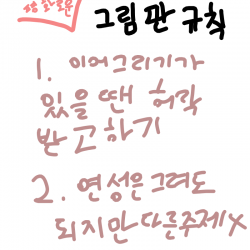 그림판 규칙
1. 이어그리기가
있을 땐 허락
받고하기
2. 연성은그려도
되지만다른주제X